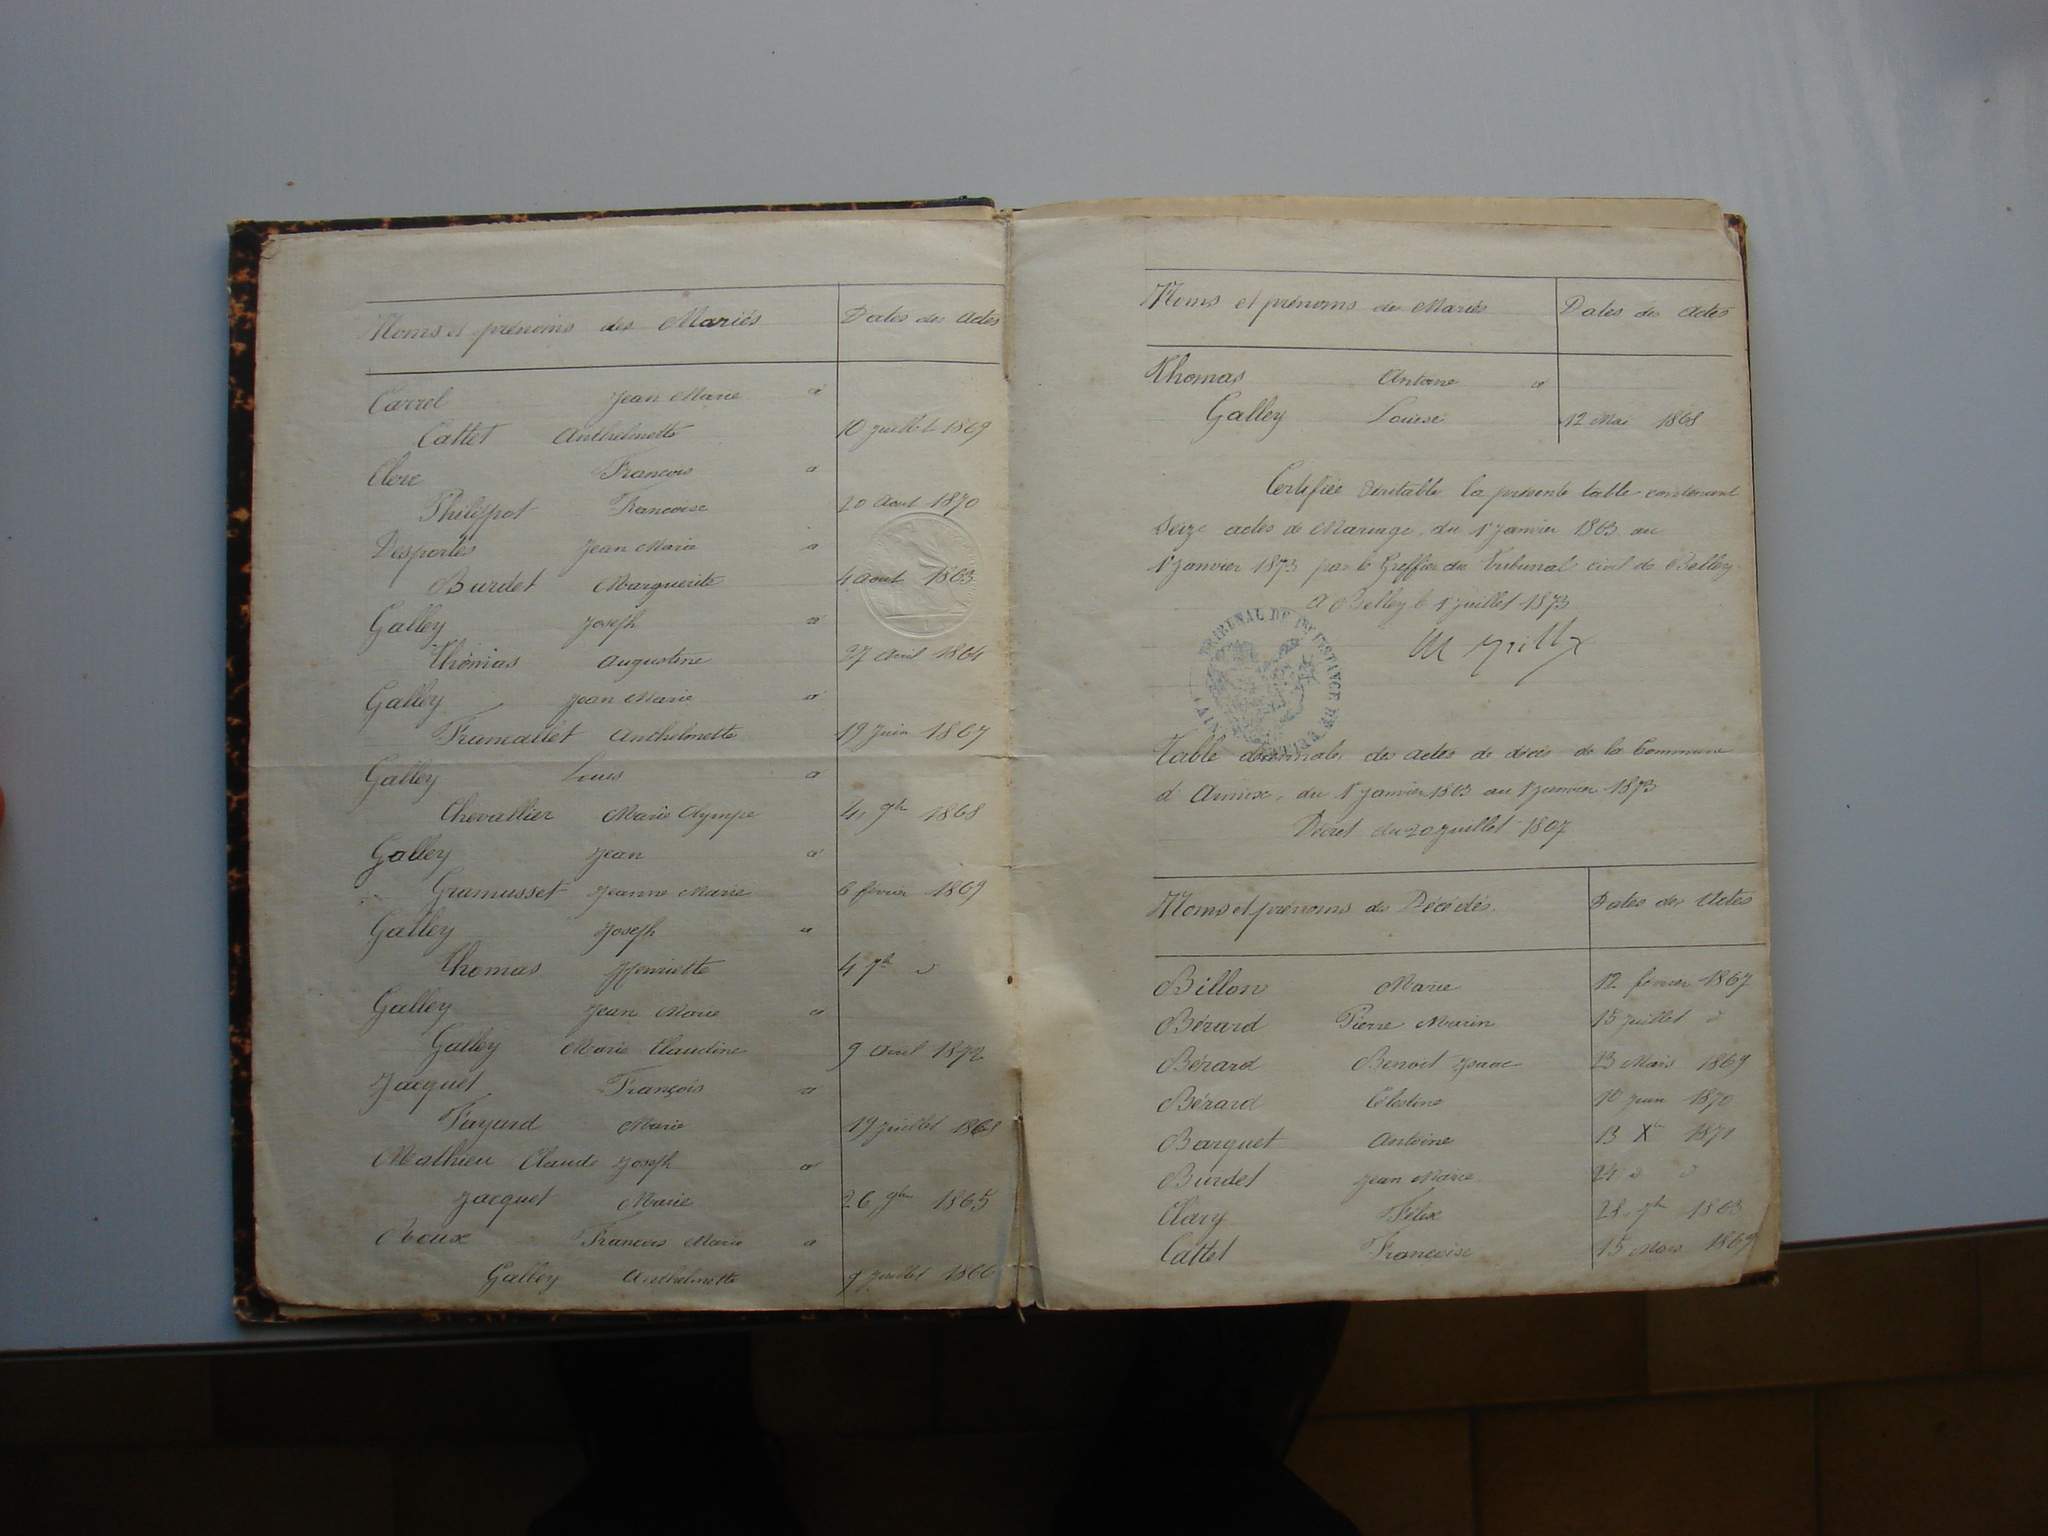 Noms et prénoms des Mariés Dates des Actes
Carrel Jean Marie a
Cattet Anthelmette 10 juillet 1869
Clerc Francois a
Philippot Francoise 20 Aout 1870
Desportes Jean Marie a
Burdet Marguerite 4 Aout 1863
Galley Joseph a
Thomas Augustine 27 Avril 1864
Galley Jean Marie a
Anthelmette 19 Juin 1867
Galley Louis a
Chevallier Marie Olympe 4 9bre 1868
Galley Jean a
Gramusset Jeanne Marie 6 février 1869
Galley Joseph a
Thomas Henriette 4 7bre d
Galley Jean Marie a
Galley Marie Claudine 9 Avril 1872
Jacquet François a
Fayard Marie 19 juillet 1868
Mathieu Claude Joseph a
Jacquet Marie 26 9bre 1865
Roux Francois Marie a
Galley Anthelmette juillet 1866
Noms et prénoms des Mariés Dates des Actes
Thomas Antoine a
Galley Louise 12 Mai 1868
Certifiée Véritable la présente table contenant
Seize actes de Mariage, du 1er Janvier 1863 au
1er Janvier 1873 par le Greffier du Tribunal civil de Belley
A Belley le 1er juillet 1873
TRIBUNAL DE 1RE INSTANCE DE BELLEY
Table décennale des actes de décès de la Commune
d' du 1er Janvier 1863 au 1er Janvier 1873
Décret du 20 juillet 1807
Noms et prénoms des Décédés Dates des Actes
Billon Marie 12 février 1867
Bérard Pierre Marin 15 juillet d
Bérard Benoit Isaac 13 Mars 1869
Bérard Célestine 10 juin 1870
Barquet Antoine 13 Xbre 1871
Burdet Jean Marie 24 d d
Clary Félix 28 7bre 1863
Cattet Francoise 15 Mars 1869